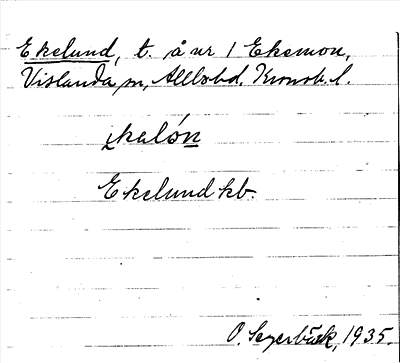 Ekelund, t. å nr 1 Ekemon,
Vislanda sn, Allbo hd, Kronob. l.
ekelón
Ekelund kb.
P. Segerbäck, 1935.